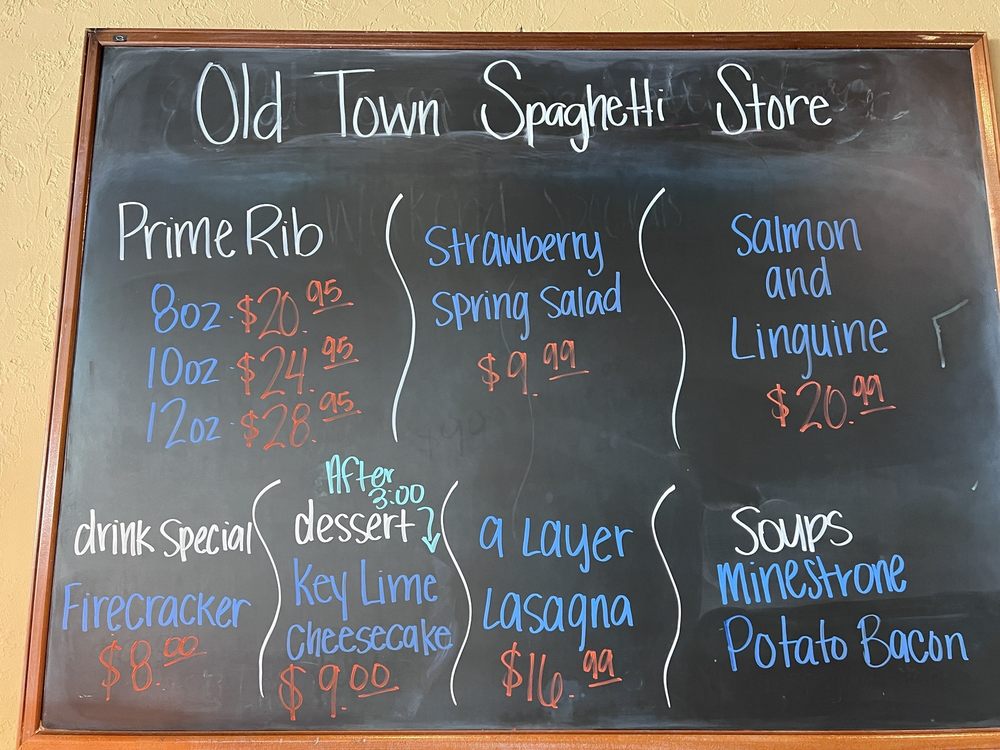 Old Town Spaghetti Store
Prime Rib
8oz - $20.95
10oz - $24.95
12oz - $28.95
Strawberry
Spring Salad
$9.99
Salmon
and
Linguine
$20.99
drink Special
Firecracker
$8.00
After
3:00
dessert
Key Lime
Cheesecake
$9.00
9 Layer
Lasagna
$16.99
Soups
Minestrone
Potato Bacon